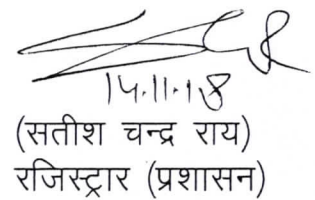 14.11.18
(सतीश चन्द्र राय)
रजिस्ट्रार (प्रशासन)